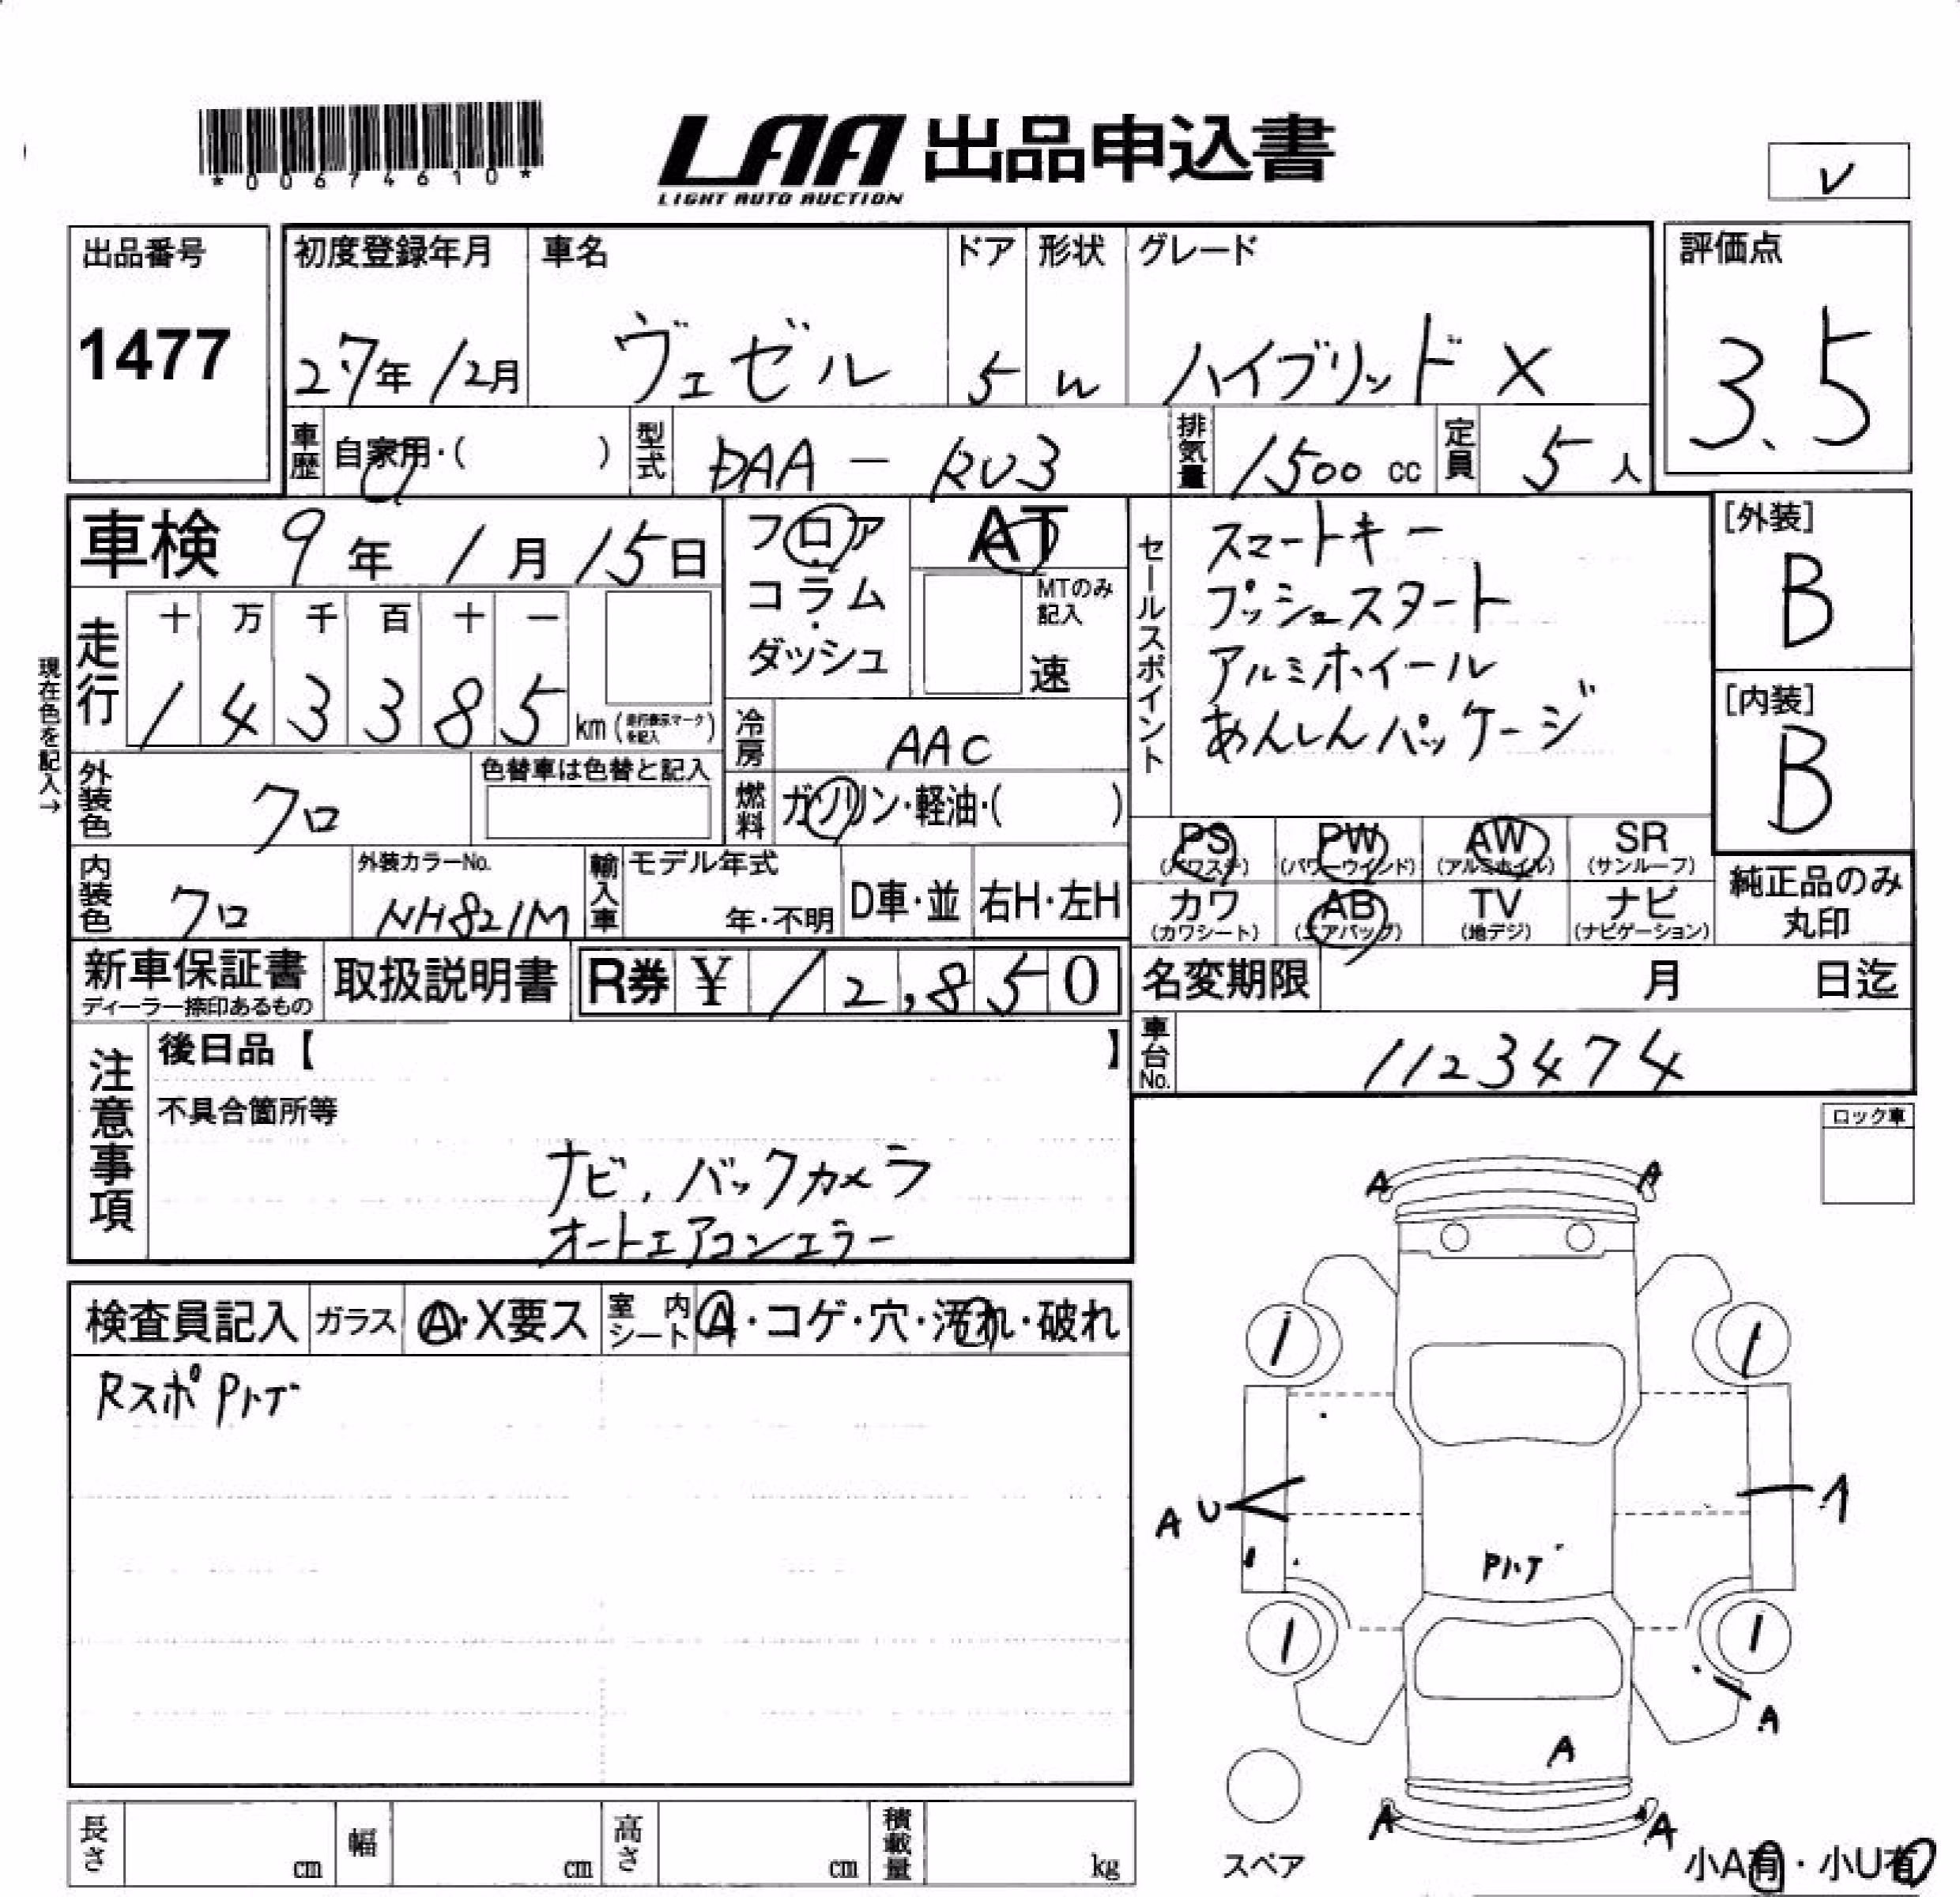 *00674610*
LAA 出品申込書
LIGHT AUTO AUCTION
レ
出品番号
1477
初度登録年月 車名 ドア 形状 グレード
27年12月 ヴェゼル 5 W ハイブリッド X
評価点
3.5
車歴 自家用・( ) 型式 DAA-RU3 排気量 1500 cc 定員 5人
車検 9年1月15日
フロア・コラム・ダッシュ
AT
MTのみ記入
速
セールスポイント
スマートキー
プッシュスタート
アルミホイール
あんしんパッケージ
[外装]
B
[内装]
B
現在色を記入→
走行 十 万 千 百 十 一
1 4 3 3 8 5 km
冷房 AAC
燃料 ガソリン・軽油・( )
外装色 クロ
色替車は色替と記入
内装色 クロ
外装カラーNo.
NH821M
輸入車 モデル年式
年・不明 D車・並 右H・左H
PS (パワステ) PW (パワーウインド) AW (アルミホイル) SR (サンルーフ)
カワ (カワシート) AB (エアバッグ) TV (地デジ) ナビ (ナビゲーション)
純正品のみ
丸印
新車保証書
ディーラー捺印あるもの
取扱説明書
R券 ¥12,850
名変期限 月 日迄
車台No. 1123474
注意事項
後日品【 】
不具合箇所等
ナビ,バックカメラ
オートエアコンエラー
ロック車
検査員記入 ガラス A・X要ス 室内シート A・コゲ・穴・汚れ・破れ
Rスポ Pハゲ
A A
1 1
A U 1
Pハゲ
1 1
A
A
A A
スペア
小A有・小U有
長さ cm 幅 cm 高さ cm 積載量 kg